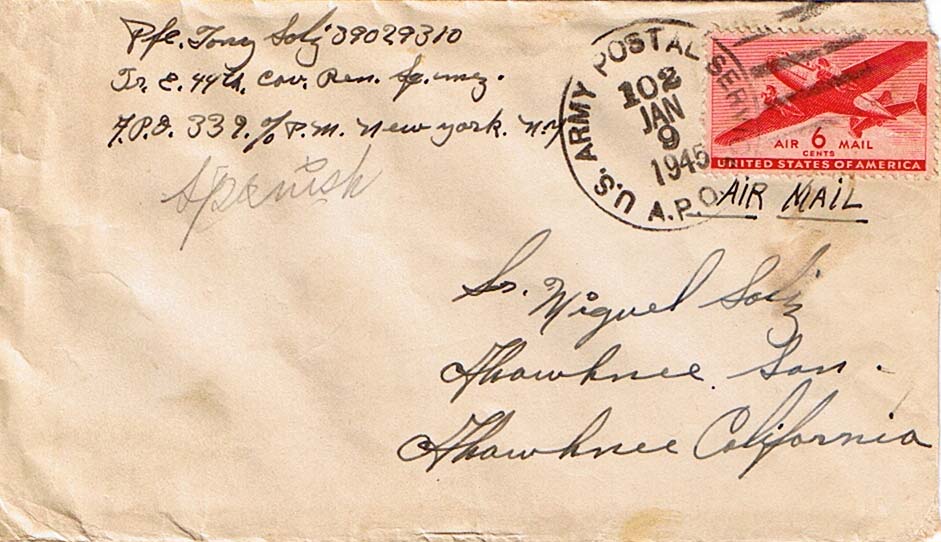 Pfc. Tony Soliz 39029310
Tr. E. 44th Cav. Ren. Sq. mez.
A.P.O. 339. % P.M. New york. N.Y
Spanish
U.S. ARMY POSTAL SERVICE
102
JAN
9
1945
A.P.O.
AIR 6 MAIL
CENTS
UNITED STATES OF AMERICA
AIR MAIL
Sr. Miguel Soliz
Ahawhnee. San.
Ahawhnee California